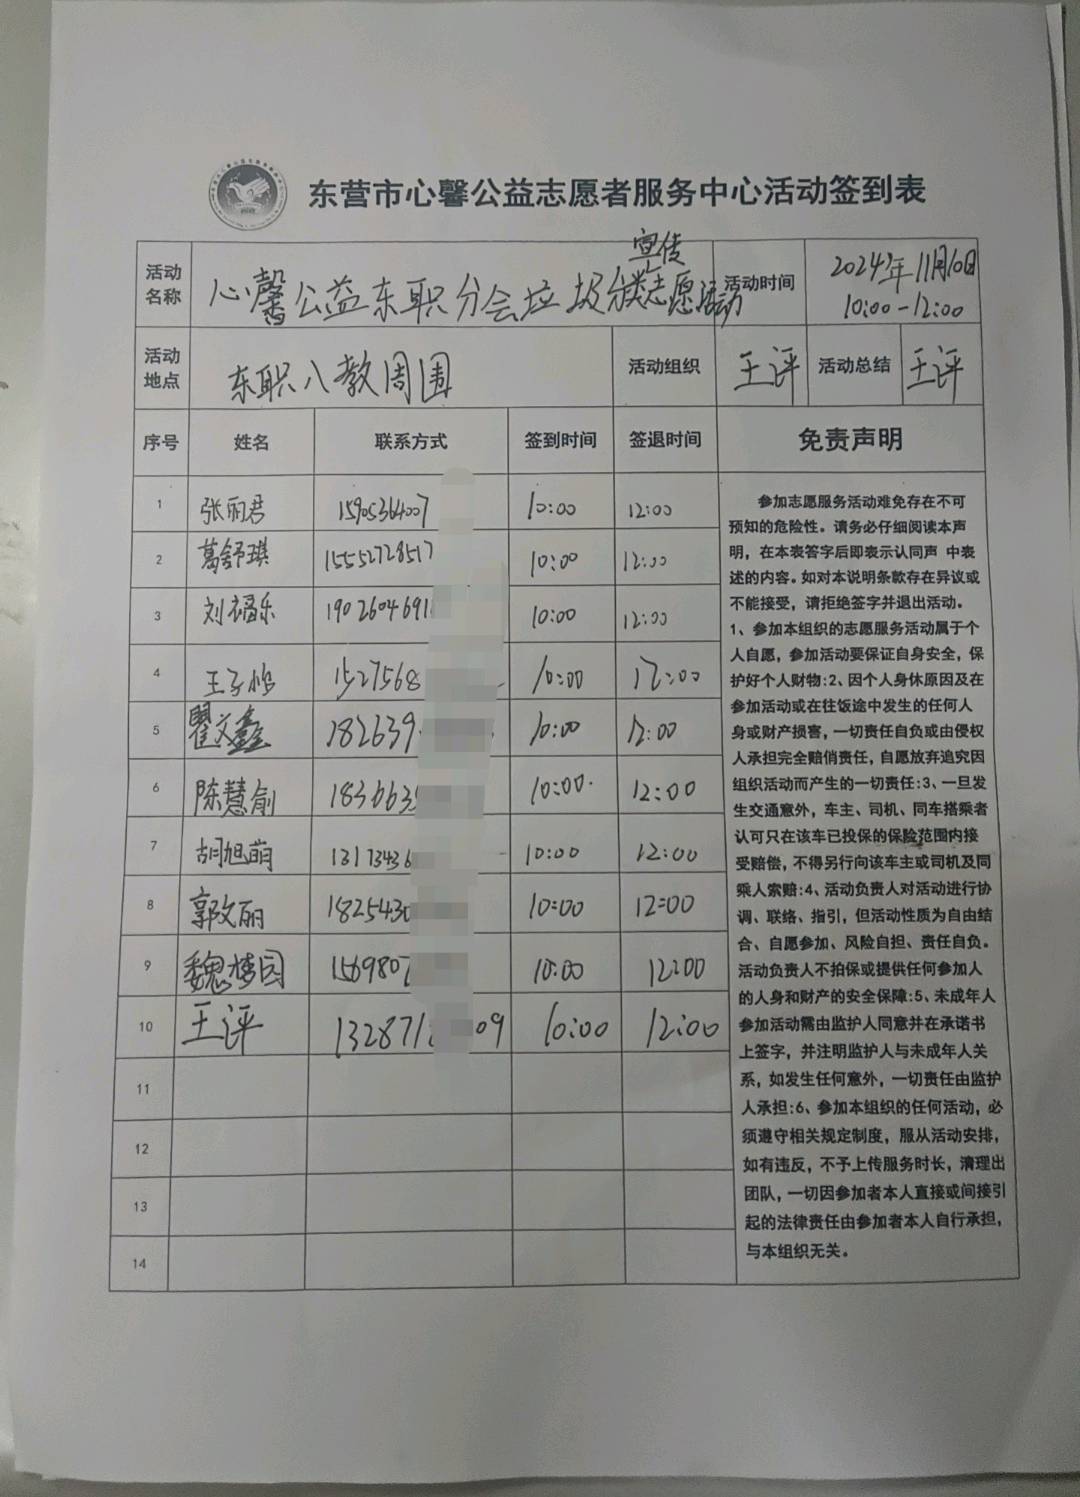 东营市心馨公益志愿者服务中心活动签到表
活动名称 心馨公益东职分会垃圾分类宣传志愿活动 活动时间 2024年11月10日 10:00-12:00
活动地点 东职八教周围 活动组织 王评 活动总结 王评
序号 姓名 联系方式 签到时间 签退时间 免责声明
1 张丽君 15905364007 10:00 12:00
2 葛舒琪 15552728517 10:00 12:00
3 刘福乐 190260469 10:00 12:00
4 王子怡 1527568 10:00 12:00
5 翟文鑫 182639 10:00 12:00
6 陈慧俞 183663 10:00 12:00
7 胡旭萌 13173436 10:00 12:00
8 郭改丽 18254430 10:00 12:00
9 魏梦园 1569807 10:00 12:00
10 王评 132871 09 10:00 12:00
11
12
13
14
参加志愿服务活动难免存在不可
预知的危险性。请务必仔细阅读本声
明，在本表签字后即表示认同声 中表
述的内容。如对本说明条款存在异议或
不能接受，请拒绝签字并退出活动。
1、参加本组织的志愿服务活动属于个
人自愿，参加活动要保证自身安全，保
护好个人财物:2、因个人身休原因及在
参加活动或在往饭途中发生的任何人
身或财产损害，一切责任自负或由侵权
人承担完全赔俏责任，自愿放弃追究因
组织活动而产生的一切责任:3、一旦发
生交通意外，车主、司机、同车搭乘者
认可只在该车已投保的保险范围内接
受赔偿，不得另行向该车主或司机及同
乘人索赔:4、活动负责人对活动进行协
调、联络、指引，但活动性质为自由结
合、自愿参加、风险自担、责任自负。
活动负责人不拍保或提供任何参加人
的人身和财产的安全保障:5、未成年人
参加活动需由监护人同意并在承诺书
上签字，并注明监护人与未成年人关
系，如发生任何意外，一切责任由监护
人承担:6、参加本组织的任何活动，必
须遵守相关规定制度，服从活动安排，
如有违反，不予上传服务时长，清理出
团队，一切因参加者本人直接或间接引
起的法律责任由参加者本人自行承担，
与本组织无关。